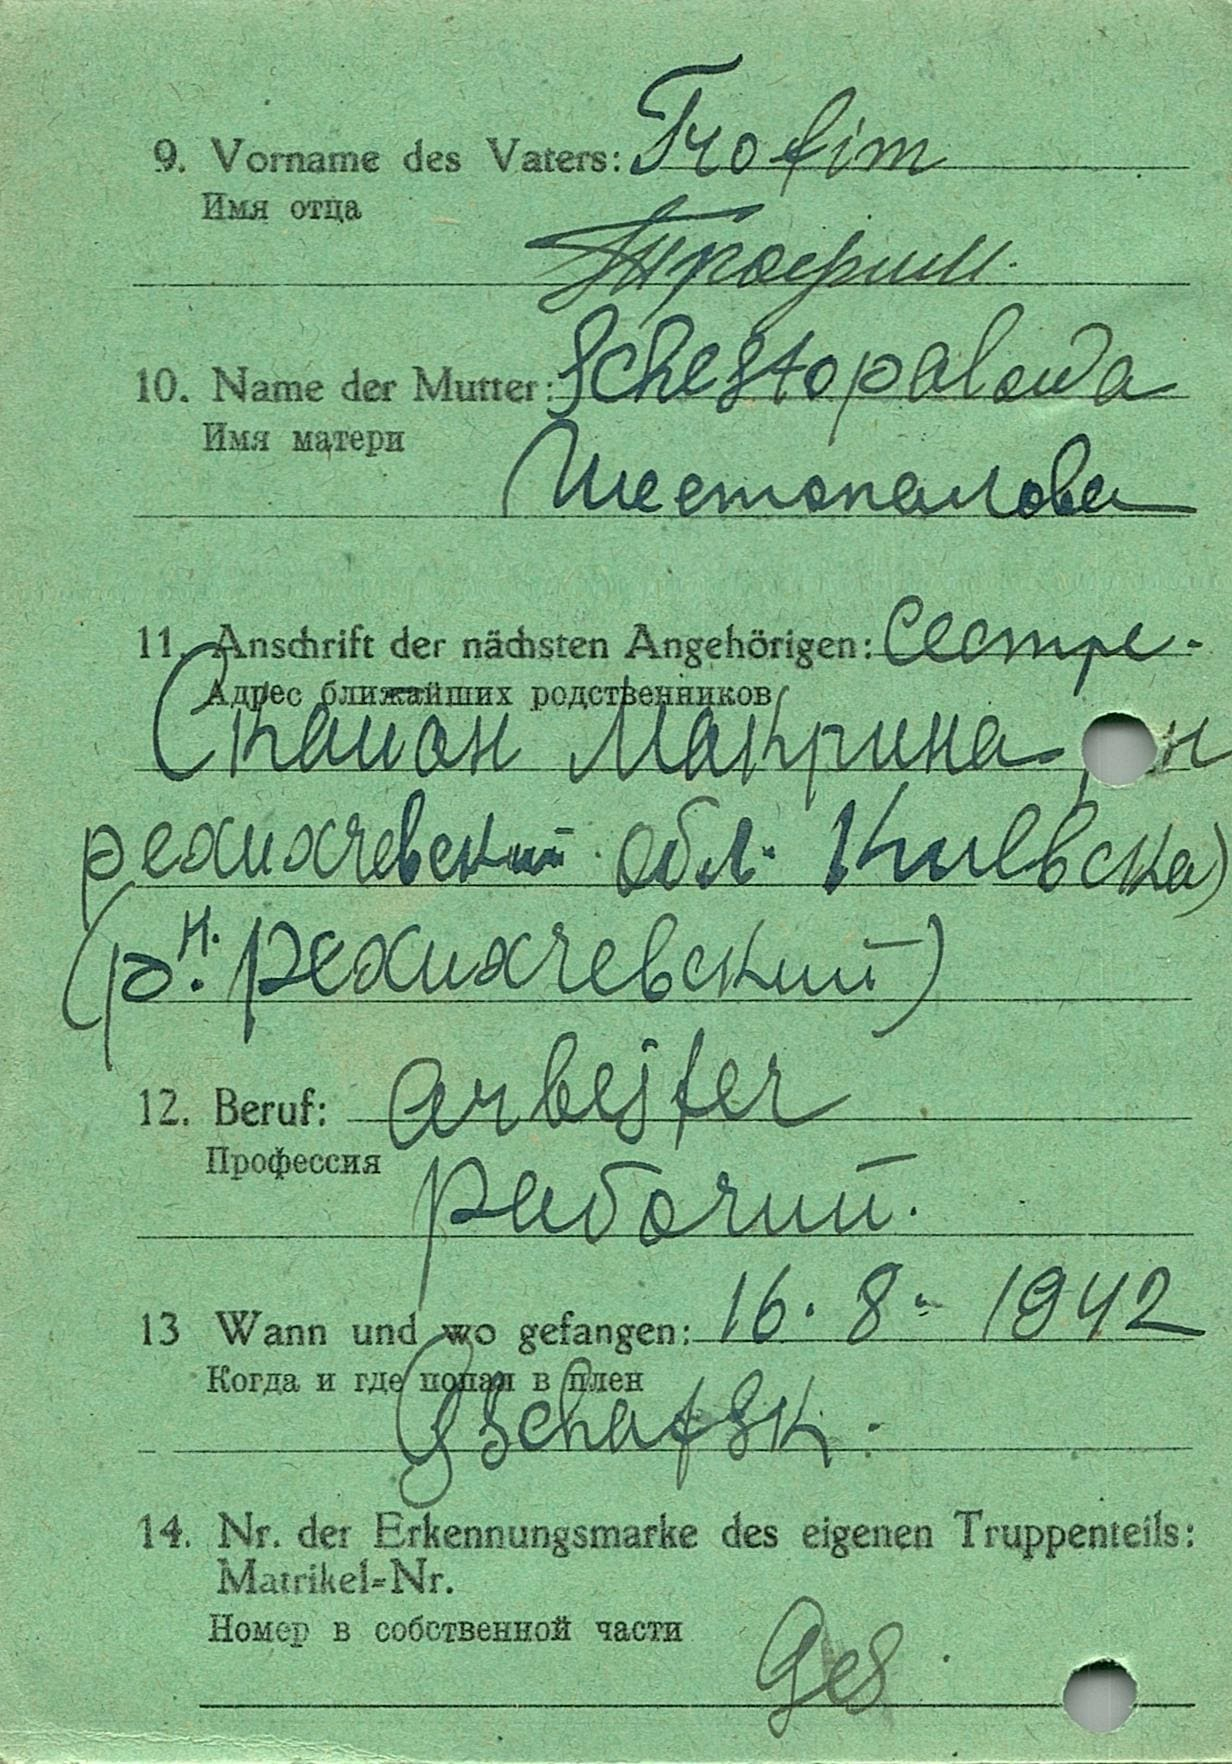 9. Vorname des Vaters: Trofim
Имя отца
Трофим.
10. Name der Mutter: Schestopalowa
Имя матери
Шестопалова
11. Anschrift der nächsten Angehörigen: Сестре.
Адрес ближайших родственников
Макрина
обл. Киевска)
(р.н.
12. Beruf: Arbejter
Профессия
Рабочий.
13 Wann und wo gefangen: 16. 8. 1942
Когда и где попал в плен
14. Nr. der Erkennungsmarke des eigenen Truppenteils:
Matrikel-Nr.
Номер в собственной части